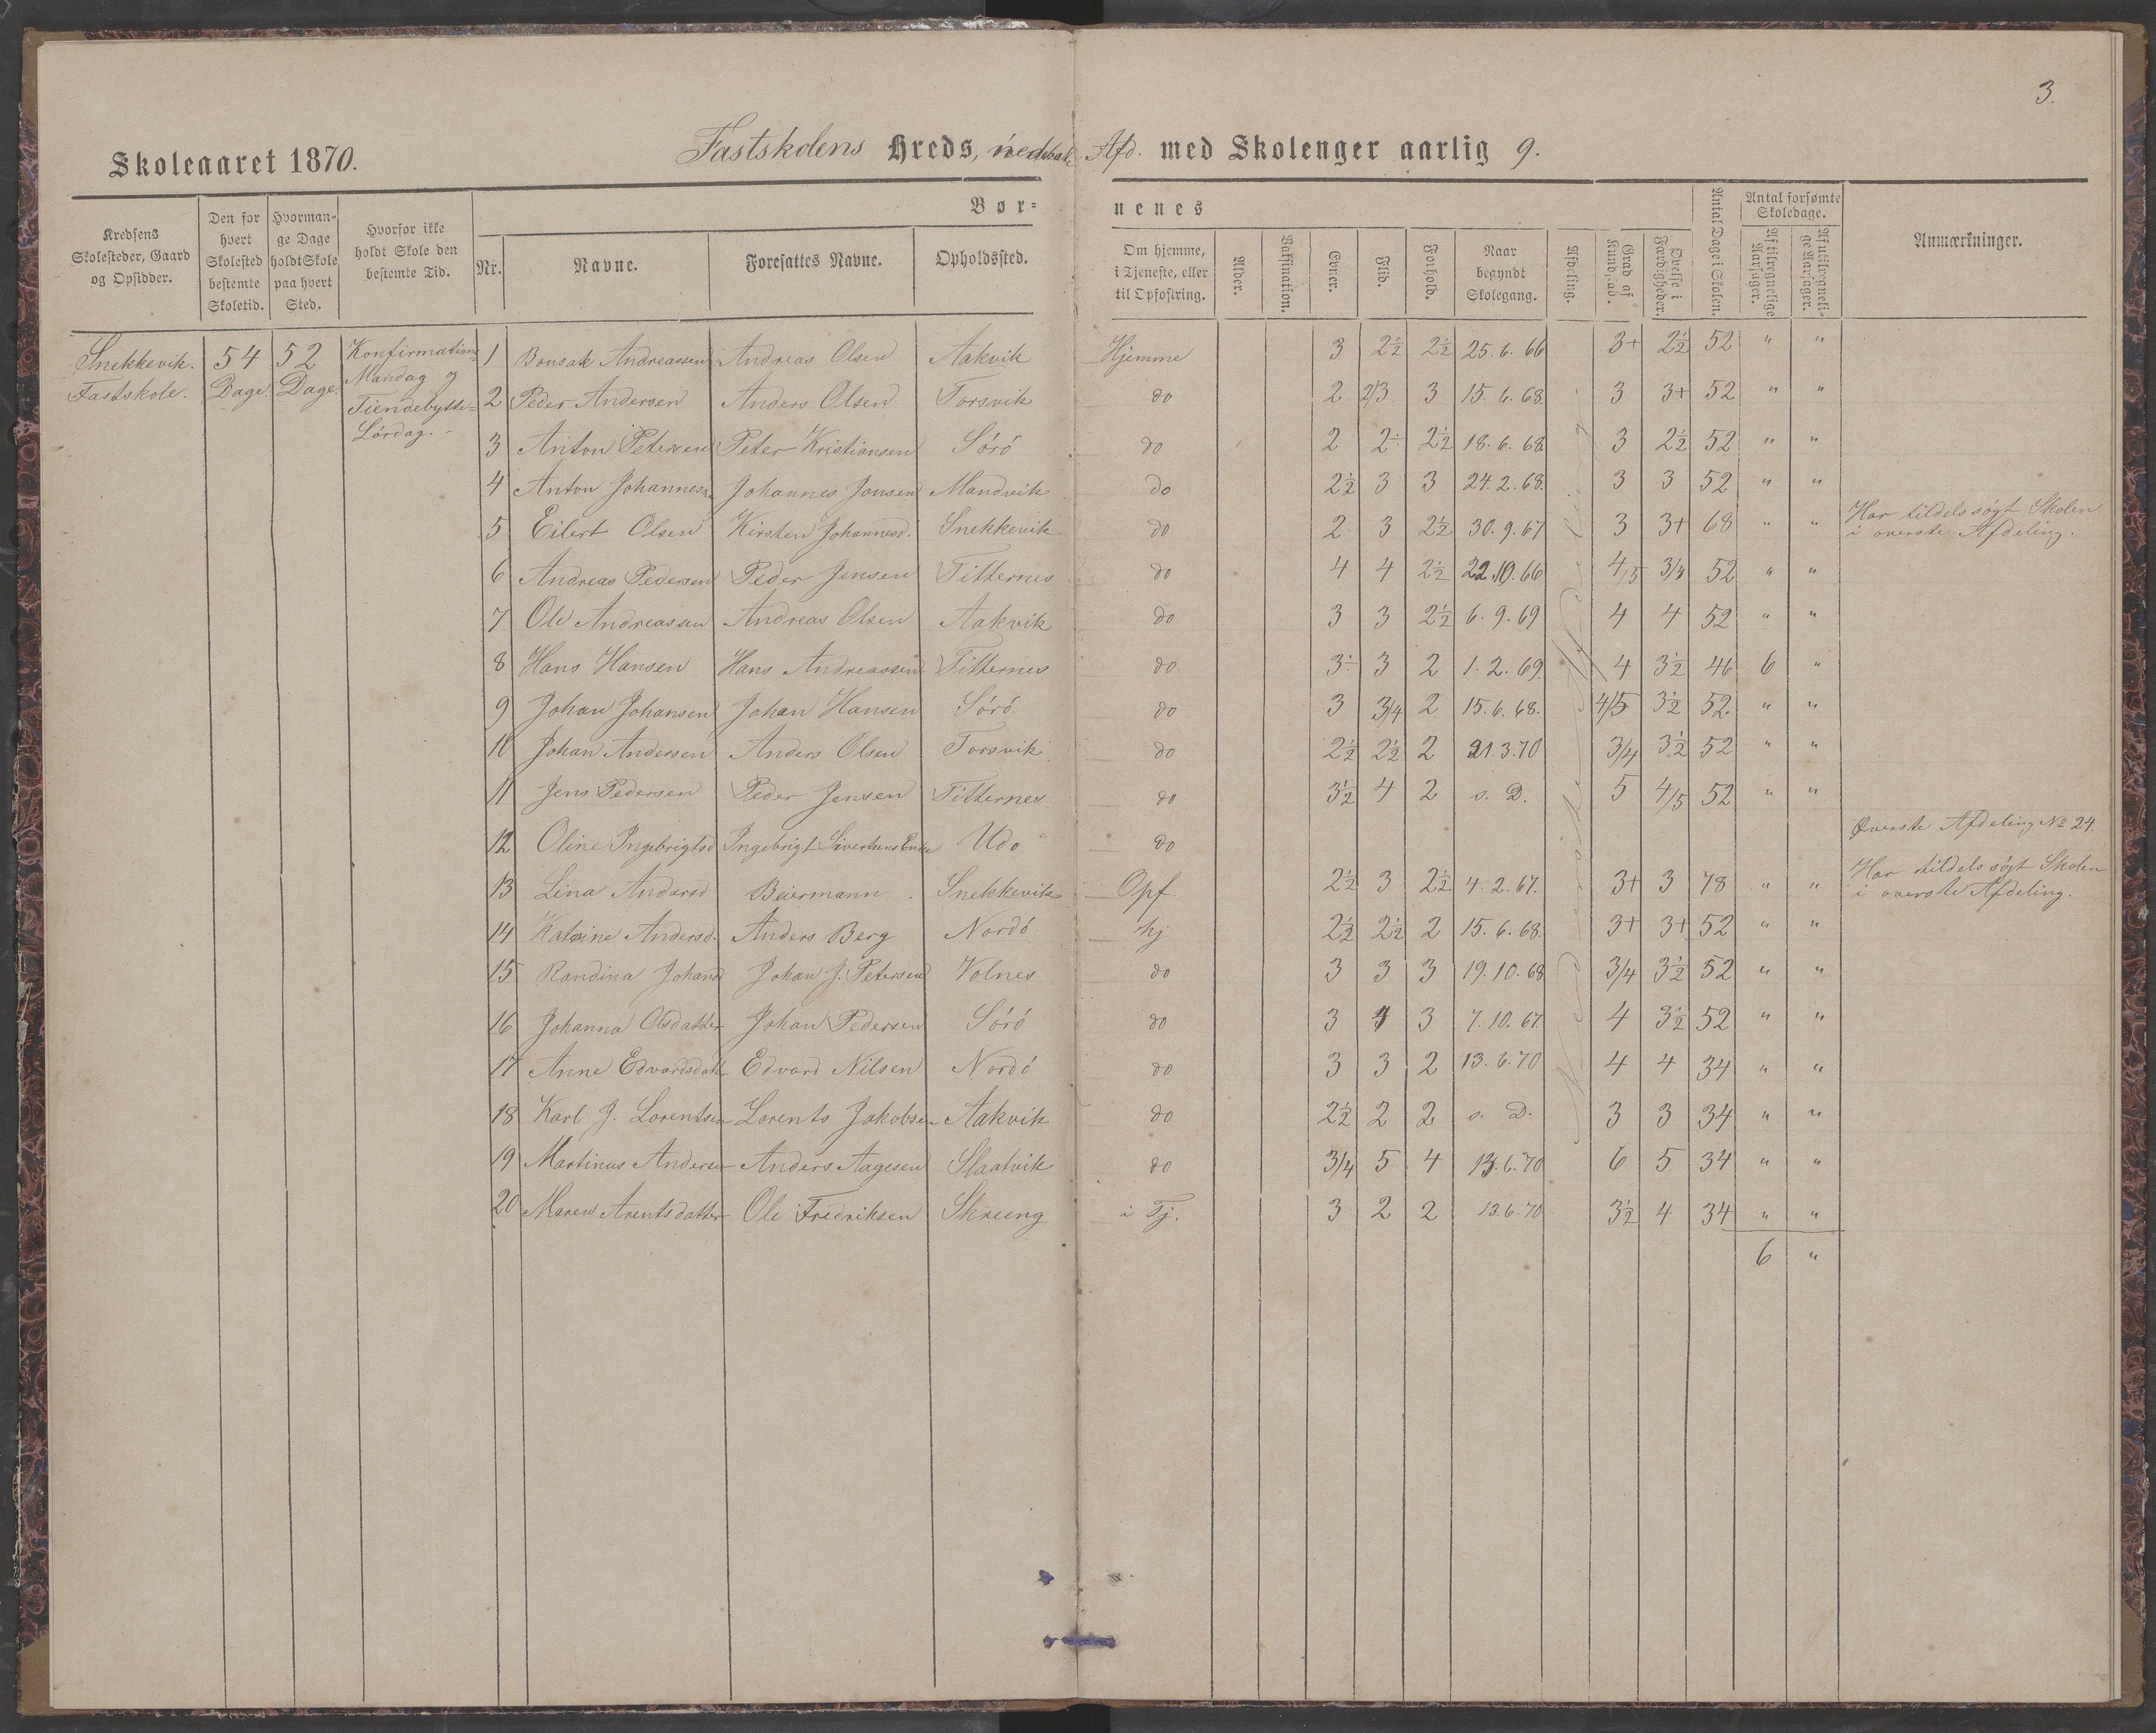 3.
Skoleaaret 1870. Fastskolens Kreds, nederste Afd. med Skolenger aarlig 9.
Kredsens Skolesteder, Gaard og Opsidder.
Den for hvert Skolested bestemte Skoletid.
Hvormange Dage holdt Skole paa hvert Sted.
Hvorfor ikke holdt Skole den bestemte Tid.
Bør=nenes
Nr. Navne. Foresattes Navne. Opholdssted. Om hjemme, i Tjeneste, eller til Opfostring. Alder. Vaksination. Evner. Flid. Forhold. Naar begyndt Skolegang. Afdeling. Grad af Kundskab. Øvelse i Færdigheder. Antal Dage i Skolen. Antal forsømte Skoledage. Af tilregnelige Aarsager. Af utilregnelige Aarsager. Anmærkninger.
Snekkevik. Fastskole.
54 Dage
52 Dage
Konfirmations=
Mandag og
Tiendebytte=
Lördag.
Nederste Afdeling
1 Bonsak Andreassen Andreas Olsen Aakvik Hjemme 3 2½ 2½ 25.6.66 3+ 2½ 52 " "
2 Peder Andersen Anders Olsen Torsvik do 2 2/3 3 15.6.68. 3 3+ 52 " "
3 Anton Petersen Peter Kristiansen Sörö do 2 2÷ 2½ 18.6.68 3 2½ 52 " "
4 Anton Johanness. Johannes Jonsen Mandvik do 2½ 3 3 24.2.68. 3 3 52 " "
5 Eilert Olsen Kirsten Johannesd. Snekkevik do 2 3 2½ 30.9.67 3 3+ 68 " " Har tildels søgt Skolen
i øverste Afdeling.
6 Andreas Pedersen Peder Jensen Titternes do 4 4 2½ 22.10.66 4/5 3/4 52 " "
7 Ole Andreassen Andreas Olsen Aakvik do 3 3 2½ 6.9.69 4 4 52 " "
8 Hans Hansen Hans Andreassen Titternes do 3÷ 3 2 1.2.69 4 3½ 46 6 "
9 Johan Johansen Johan Hansen Sörö do 3 3/4 2 15.6.68. 4/5 3½ 52 " "
10 Johan Andersen Anders Olsen Torsvik do 2½ 2½ 2 21.3.70 3/4 3½ 52 " "
11 Jens Pedersen Peder Jensen Titternes do 3½ 4 2 s. D. 5 4/5 52 " "
12 Oline Ingebrigtsd Ingebrigt Sivertsens Enke Udo do Øverste Afdeling No 24.
13 Lina Andersd Beiermann Snekkevik Opf. 2½ 3 2½ 4.2.67. 3+ 3 78 " " Har tildels søgt Skolen
i øverste Afdeling.
14 Katrine Andersd. Anders Berg Nordö hj 2½ 2½ 2 15.6.68. 3+ 3+ 52 " "
15 Randina Johansd Johan J. Petersen Volnes do 3 3 3 19.10.68 3/4 3½ 52 " "
16 Johanna Olsdatter Johan Pedersen Sörö do 3 4 3 7.10.67. 4 3½ 52 " "
17 Anne Edvardsdatt. Edvard Nilsen Nordö do 3 3 2 13.6.70 4 4 34 " "
18 Karl J. Lorentsen Lorents Jakobsen Aakvik do 2½ 2 2 s. D. 3 3 34 " "
19 Martinus Andersen Anders Aagesen Slaatvik do 3/4 5 4 13.6.70 6 5 34 " "
20 Maren Arentsdatter Ole Fredriksen Skreeng i Tj. 3 2 2 13.6.70 3½ 4 34 " "
6 "